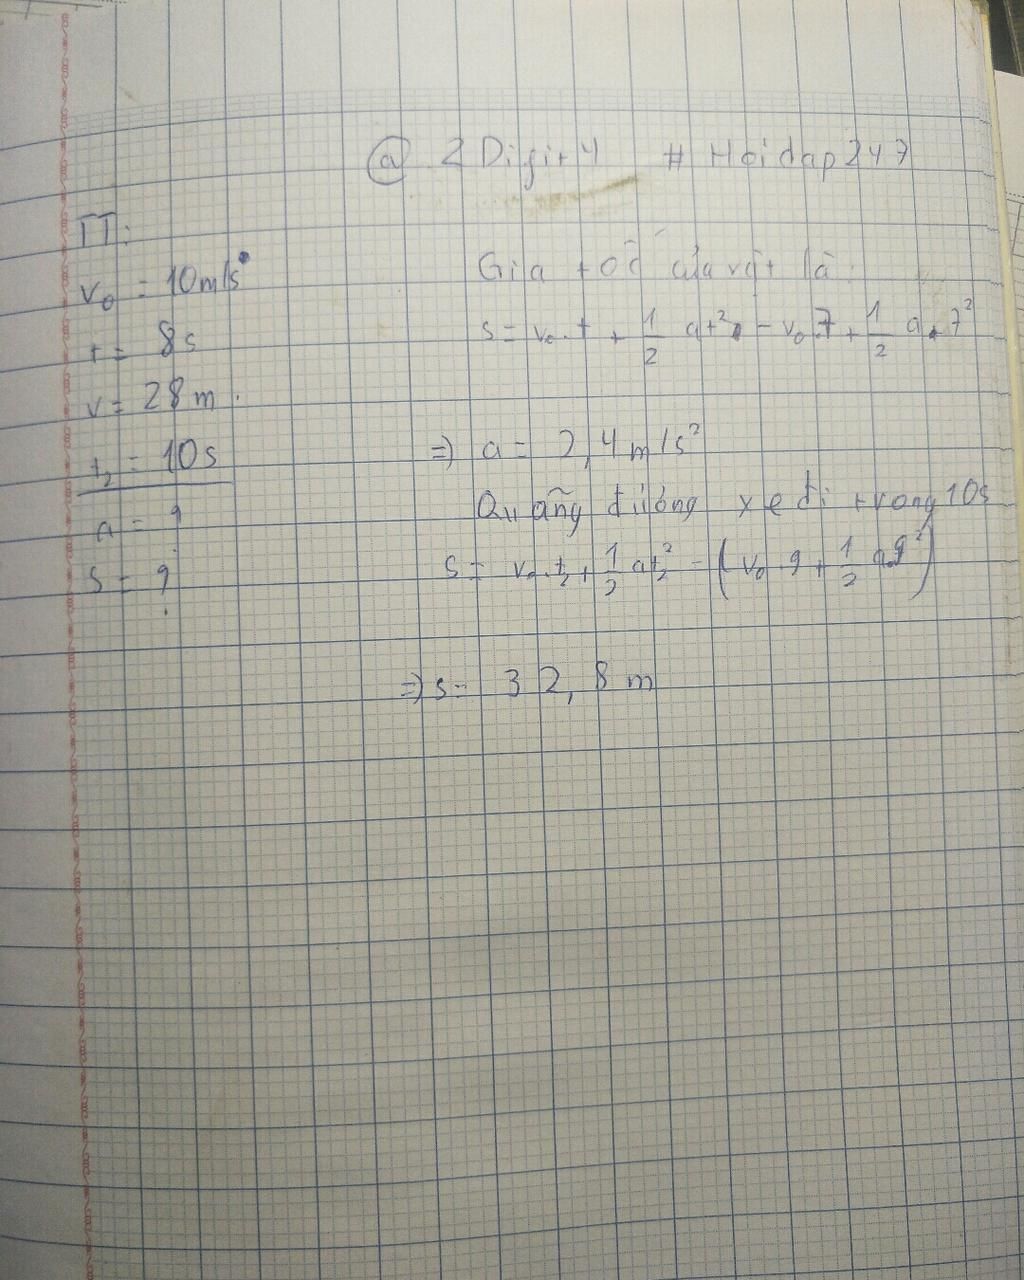 @ 2Digit4 # Hoidap247
TT:
v₀ = 10m/s
t = 8s
v = 28m.
t₂ = 10s
a = ?
s = ?
Gia tốc của vật là:
s = v₀.t + 1/2 at² - v₀.7 + 1/2 a.7²
=> a = 2,4m/s²
Quãng đường xe đi trong 10s
s = v₀.t₂ + 1/2 at₂² - (v₀.9 + 1/2 a.9²)
=> s = 32,8m